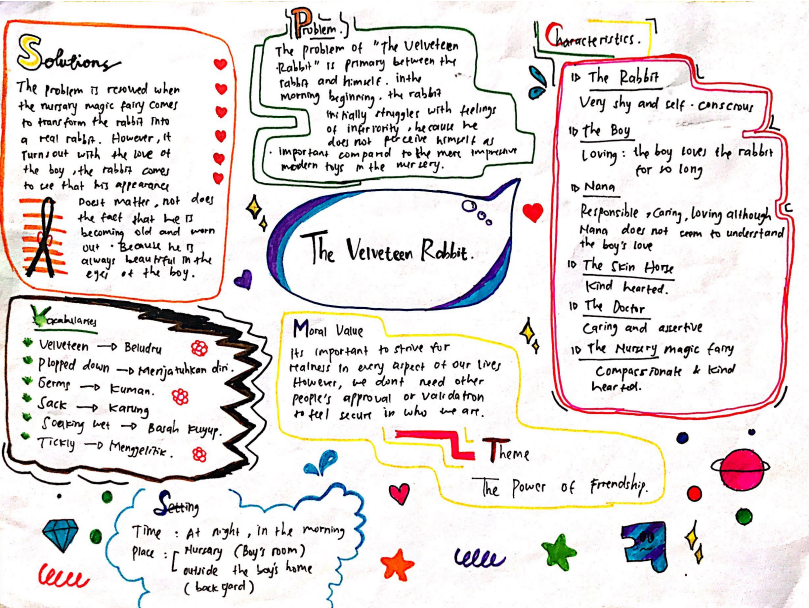 Solutions
The problem is resolved when
the nursary magic fairy comes
to transform the rabbit into
a real rabbit. However, it
turns out with the love of
the boy, the rabbit comes
to see that his appearance
Doest matter, not does
the fact that he is
becoming old and worn
out. Because he is
always beautiful in the
eyes of the boy.
Problem.
The problem of "The Velveteen
Rabbit" is primary between the
rabbit and himself. inthe
morning beginning. the rabbit
initially struggles with feelings
of inferiority, because he
does not perceive himself as
important compared to the more impressive
modern toys in the nursery.
Characteristics.
The Rabbit
Very shy and self-conscious
The Boy
Loving : the boy loves the rabbit
for so long
Nana
Responsible, Caring, Loving although
Nana does not seem to understand
the boy's love
The Skin Horse
Kind hearted.
The Doctor
Caring and assertive
The Nursery magic fairy
Compassionate & Kind
hearted.
The Velveteen Rabbit.
Vocabularies
Velveteen → Beludru
Plopped down → Menjatuhkan diri.
Germs → Kuman.
Sack → Karung
Soaking wet → Basah Kuyup.
Tickly → Menggelitik.
Moral Value
Its important to strive for
realness in every aspect of our lives
However, we dont need other
people's approval or validation
to feel secure in who we are.
Theme
The Power of Friendship.
Setting
Time : At night, in the morning
Place : Nursary (Boy's room)
outside the boy's home
(back yard)